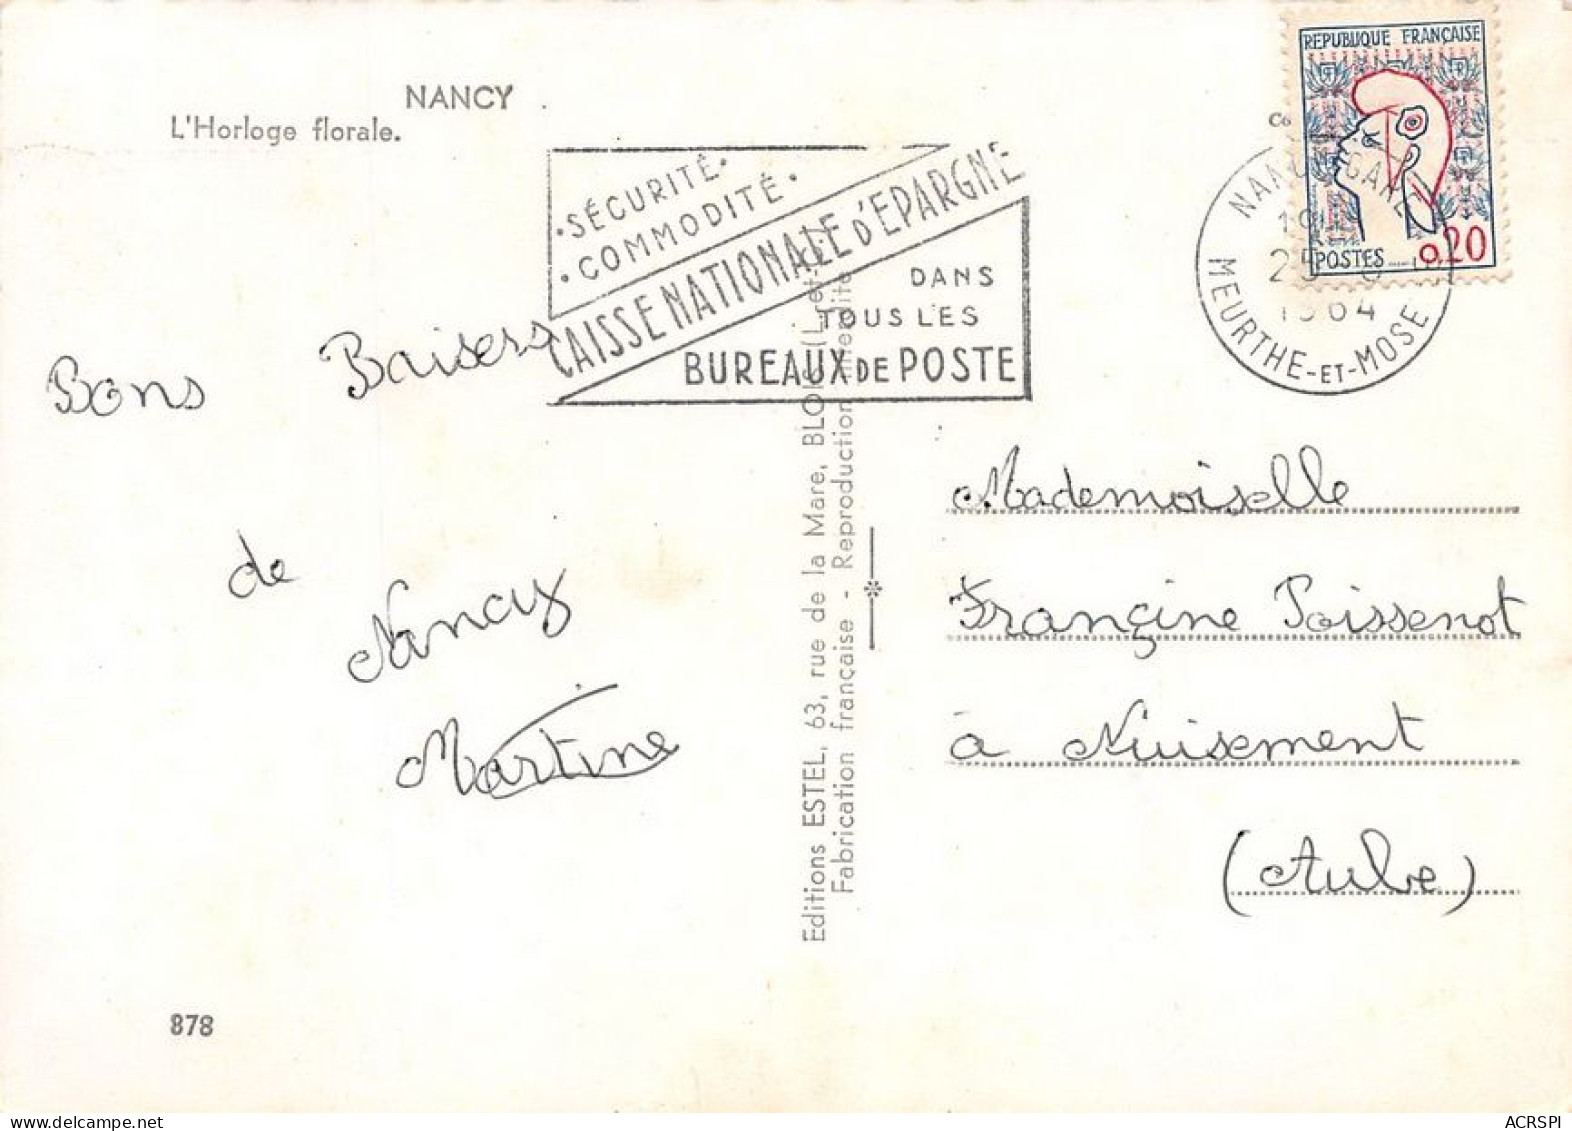 NANCY
L'Horloge florale.
·SÉCURITÉ·
·COMMODITÉ·
CAISSE NATIONALE D'ÉPARGNE
DANS
TOUS LES
BUREAUX DE POSTE
REPUBLIQUE FRANÇAISE
POSTES
0,20
NANCY GARE
25
1964
MEURTHE-ET-MOSE
Bons Baisers
de
Nancy
Martine
Editions ESTEL, 63, rue de la Mare, BLOIS (L.-et-
Fabrication française - Reproduction interdite
Mademoiselle
Françine Poissenot
à Nuisement
(Aube)
878
ACRSPI